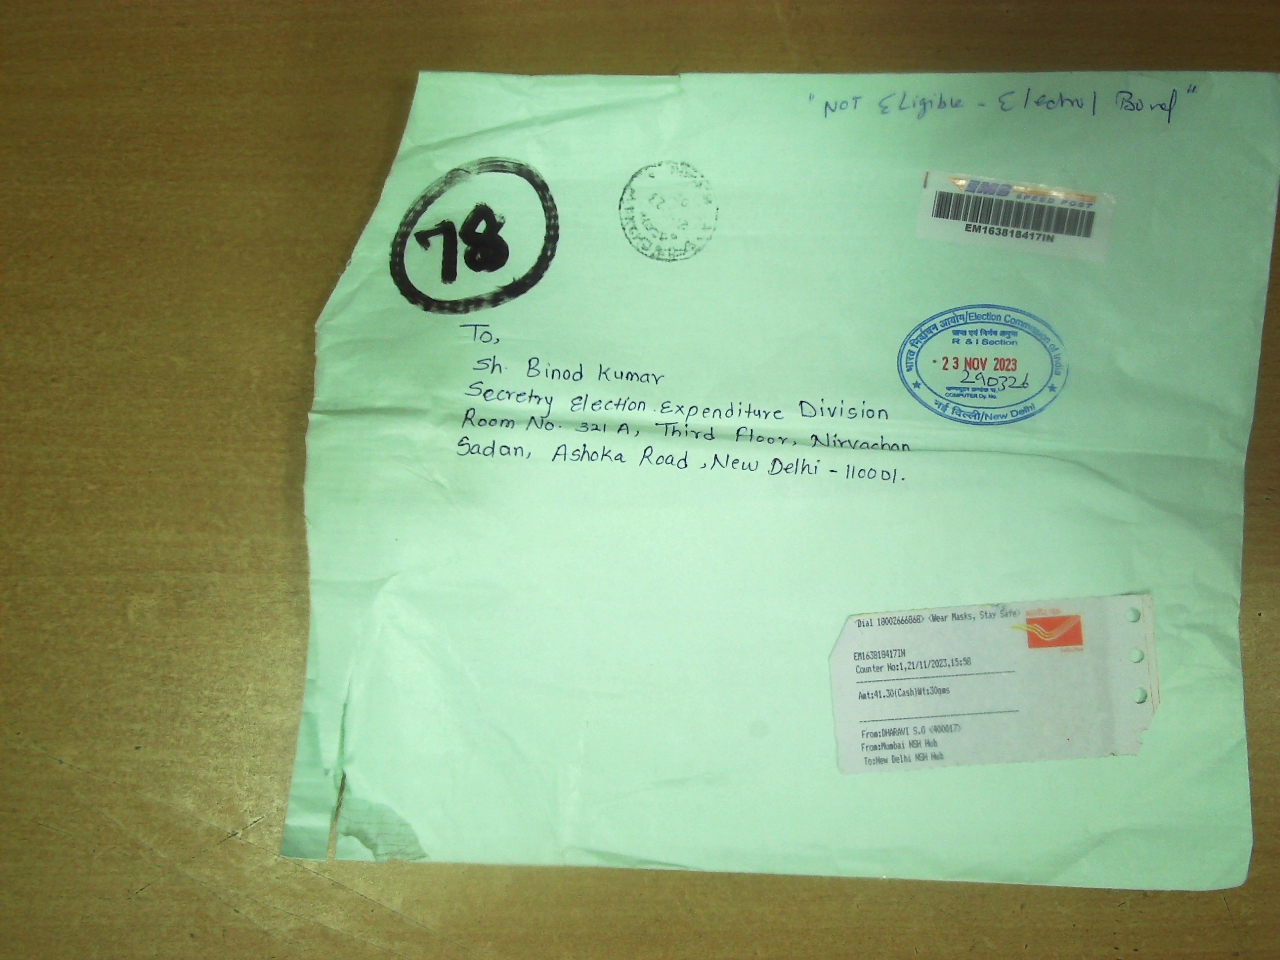 "NOT Eligible - Electrol Bond"
78
EMS
SPEED POST
EM163818417IN
भारत निर्वाचन आयोग/Election Commission of India
R & I Section
23 NOV 2023
290326
COMPUTER Dy. No.
नई दिल्ली/New Delhi
To,
Sh. Binod Kumar
Secretry Election Expenditure Division
Room No. 321 A, Third Floor, Nirvachan
Sadan, Ashoka Road, New Delhi - 110001.
<Dial 18002666868> <Wear Masks, Stay Safe>
EM163818417IN
Counter No:1,21/11/2023,15:58
Amt:41.30(Cash)Wt:30gms
From:DHARAVI S.O <400017>
From:Mumbai NSH Hub
To:New Delhi NSH Hub